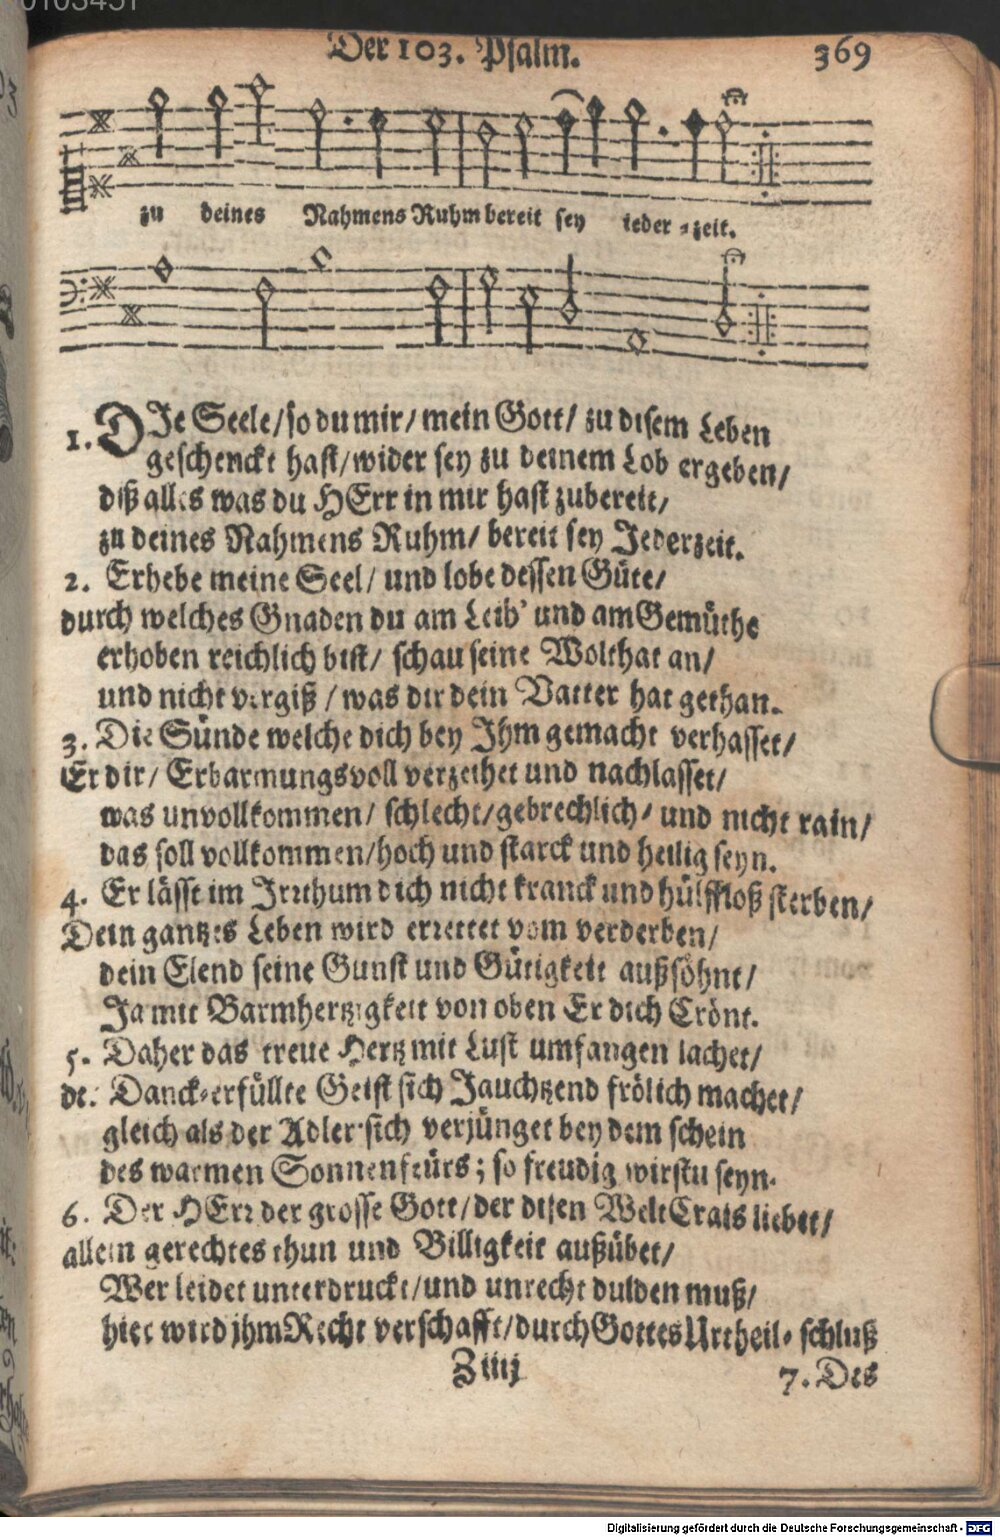 Der 103. Psalm. 369
zu deines Nahmens Ruhm bereit sey ieder-zeit.
1. DIe Seele/so du mir/mein Gott/ zu disem Leben
geschenckt hast/wider sey zu deinem Lob ergeben/
diß alles was du HErr in mir hast zubereit/
zu deines Nahmens Ruhm/ bereit sey Jederzeit.
2. Erhebe meine Seel/ und lobe dessen Güte/
durch welches Gnaden du am Leib' und am Gemüthe
erhoben reichlich bist/ schau seine Wolthat an/
und nicht vergiß / was dir dein Vatter hat gethan.
3. Die Sünde welche dich bey Ihm gemacht verhasset/
Er dir/ Erbarmungsvoll verzeihet und nachlasset/
was unvollkommen/ schlecht/gebrechlich/ und nicht rain/
das soll vollkommen/hoch und starck und heilig seyn.
4. Er lässt im Irrthum dich nicht kranck und hülffloß sterben/
Dein gantzes Leben wird errettet vom verderben/
dein Elend seine Gunst und Gütigkeit außsöhnt/
Ja mit Barmhertzigkeit von oben Er dich Crönt.
5. Daher das treue Hertz mit Lust umfangen lachet/
der Danck-erfüllte Geist sich Jauchtzend frölich machet/
gleich als der Adler sich verjünget bey dem schein
des warmen Sonnenfeürs; so freudig wirstu seyn.
6. Der HErr der grosse Gott/der disen Welt Crais liebet/
allein gerechtes thun und Billigkeit außübet/
Wer leidet unterdruckt/und unrecht dulden muß/
hier wird jhm Recht verschafft/durch Gottes Urtheil-schluß
Z iiij
7. Des
Digitalisierung gefördert durch die Deutsche Forschungsgemeinschaft - DFG